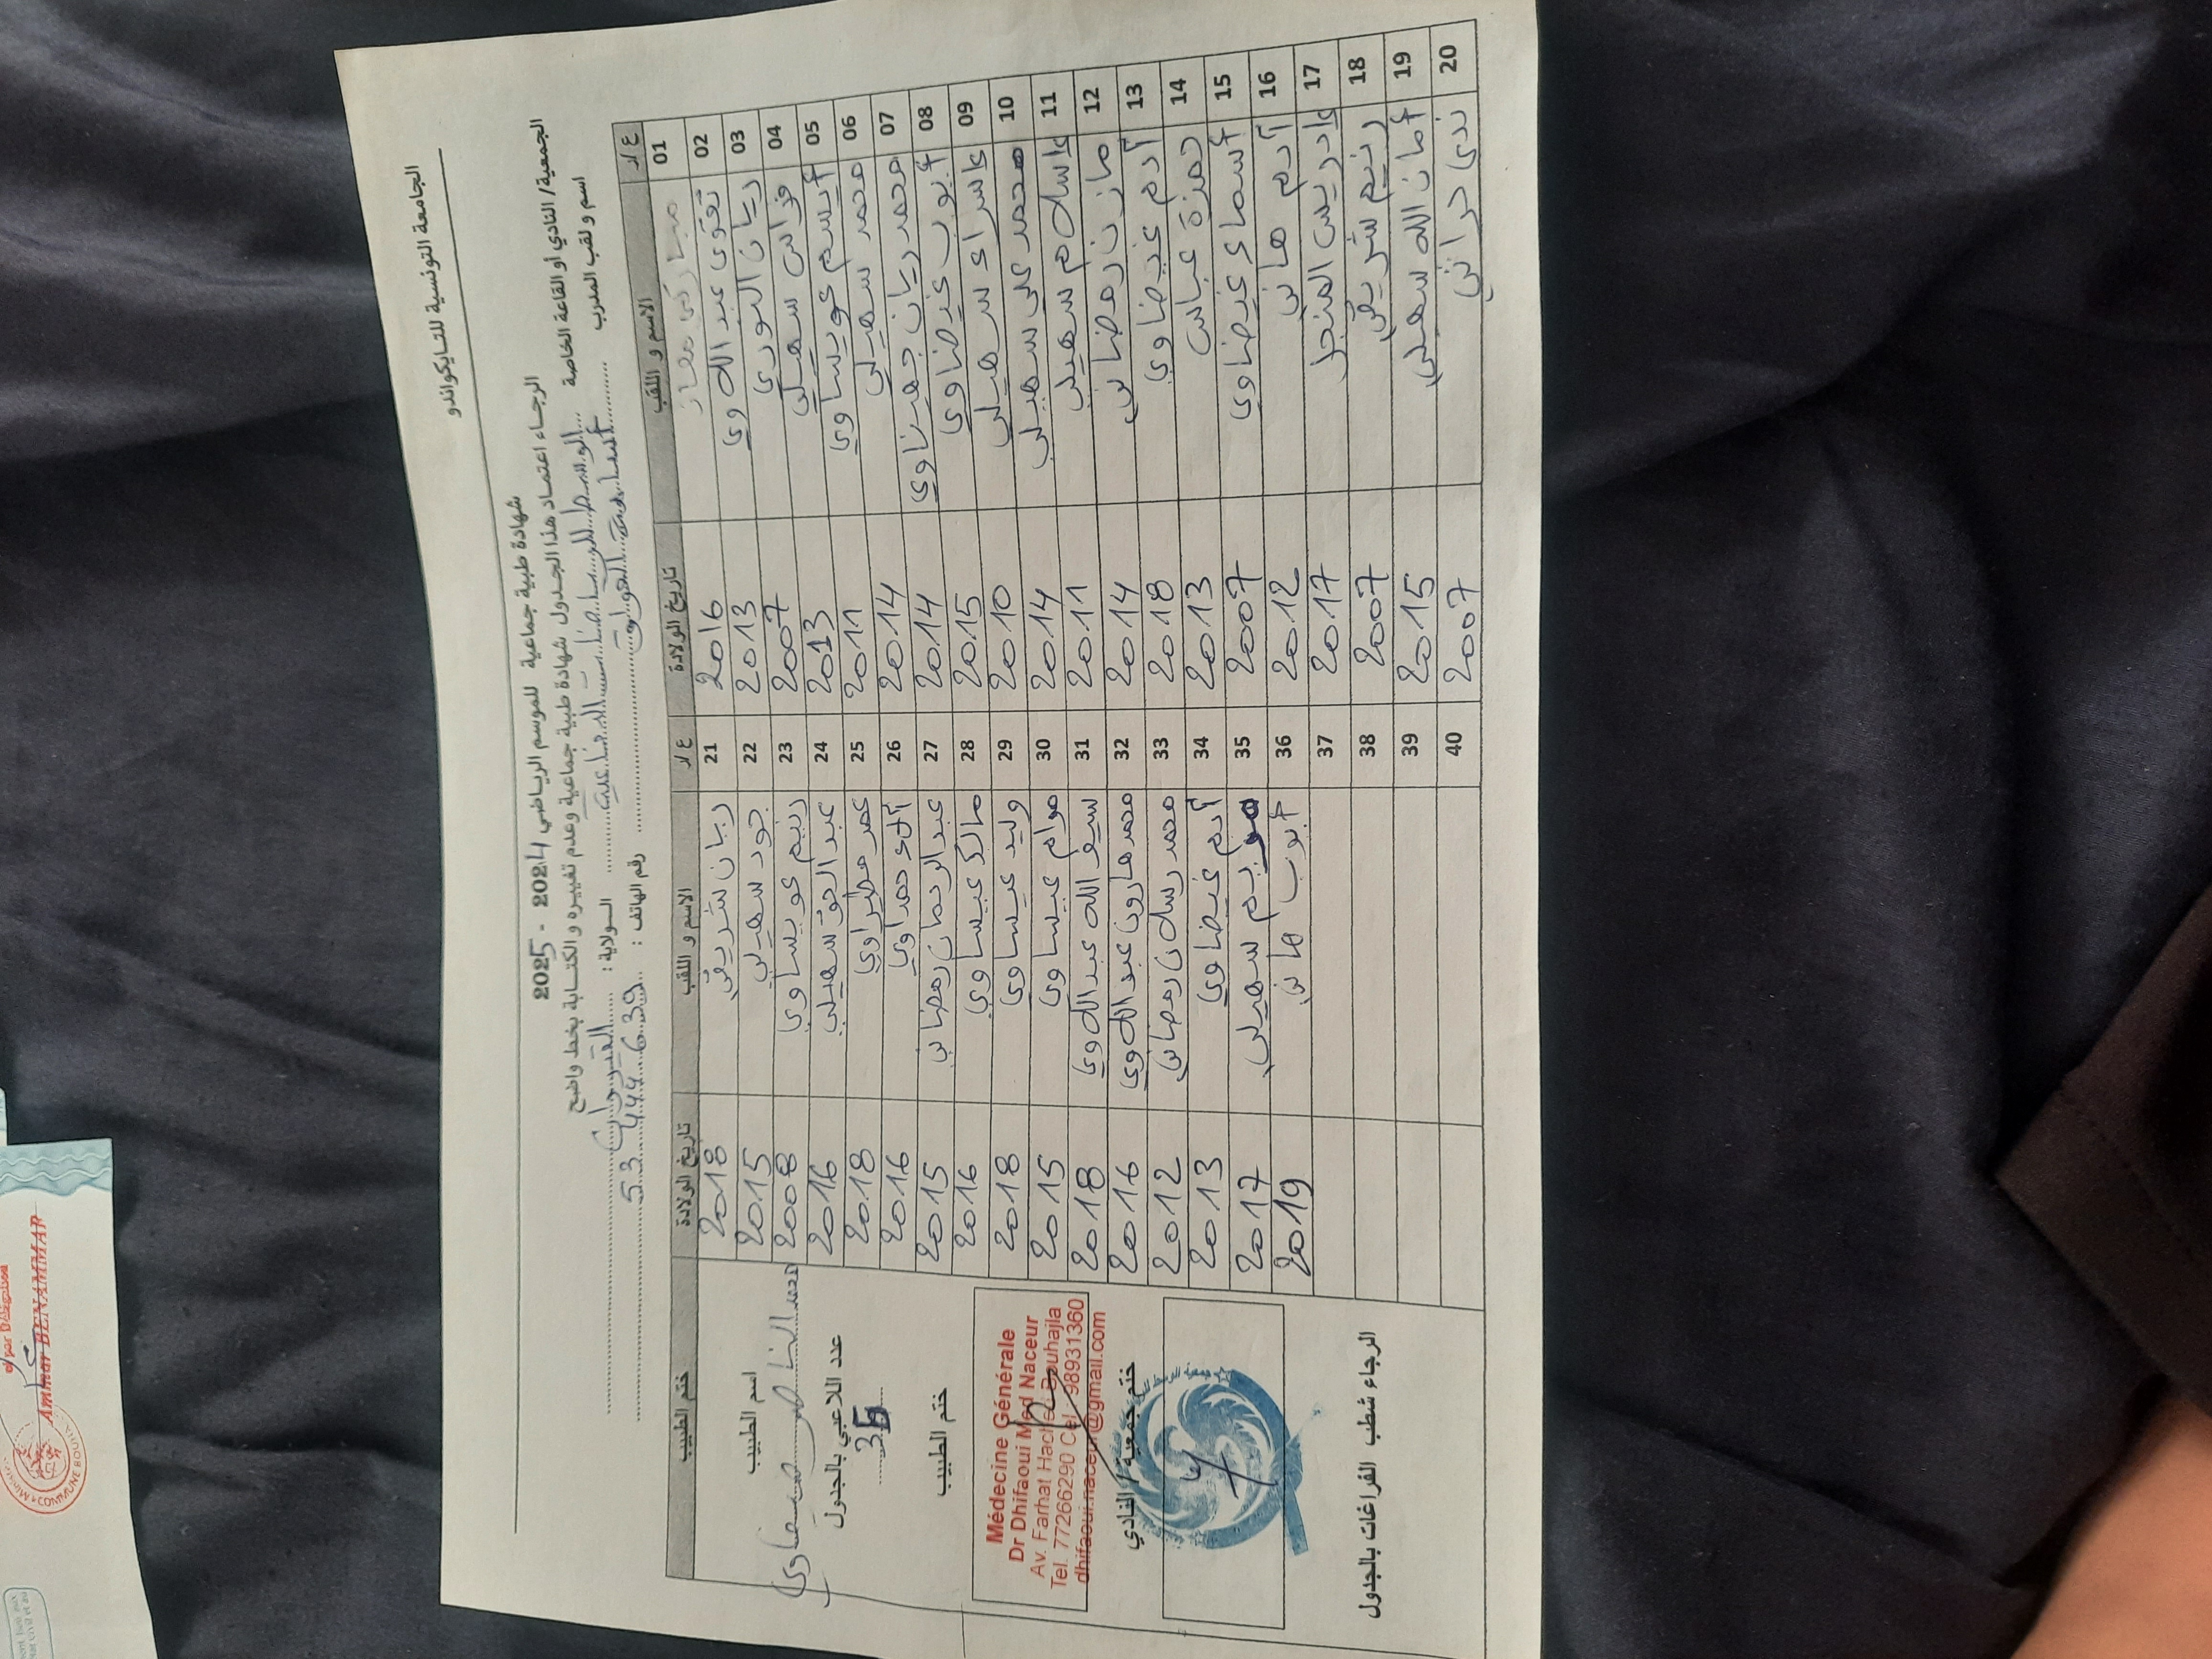 الجامعة التونسية للتايكواندو
شهادة طبية جماعية للموسم الرياضي 2024 - 2025
الرجاء اعتماد هذا الجدول شهادة طبية جماعية وعدم تغييره والكتابة بخط واضح
الجمعية/ النادي أو القاعة الخاصة الوسط للرياضات الدفاعية الولاية : القيروان
اسم و لقب المدرب أسامة رقم الهاتف : 53 444 639
ع/د الاسم و اللقب تاريخ الولادة ع/د الاسم و اللقب تاريخ الولادة ختم الطبيب
01 معاز 2016 21 ريان شريقي 2018
02 تقوى عبد اللاوي 2013 22 جود سهيلي 2015
03 ريان النوري 2007 23 رنيم عويساوي 2008
04 فراس سهيلي 2013 24 عبد الحق سهيلي 2016
05 أيسم عويساوي 2011 25 عمر مطيراوي 2018
06 محمد سهيلي 2014 26 ألاء حمداوي 2016
07 محمد ريان جهيناوي 2014 27 عبد الرحمان رمضاني 2015
08 أيوب غيضاوي 2015 28 مالك عيساوي 2016
09 إسراء سهيلي 2010 29 وليد عيساوي 2018
10 محمد علي سهيلي 2014 30 مرام عيساوي 2015
11 إسلام سهيلي 2011 31 سيف الله عبد اللاوي 2018
12 مازن رمضاني 2014 32 محمد هارون عبد اللاوي 2016
13 آدم غيضاوي 2018 33 محمد رسلان رمضاني 2012
14 حمزة عباس 2013 34 آدم غيضاوي 2013
15 أسماء غيضاوي 2007 35 مريم سهيلي 2017
16 آدم هاني 2012 36 أيوب هاني 2019
17 إدريس المنجل 2017 37
18 رنيم شريقي 2007 38
19 أمان الله سهيلي 2015 39
20 ندى حراثي 2007 40
اسم الطبيب
محمد الناصر ضيفاوي
عدد اللاعبي بالجدول
36
ختم الطبيب
Médecine Générale
Dr Dhifaoui Med Naceur
Av. Farhat Hached Bouhajla
Tel. 77266290 Cel. 98931360
dhifaoui.naceur@gmail.com
ختم جمعية / النادي
الرجاء شطب الفراغات بالجدول
Ammar BENAMMAR